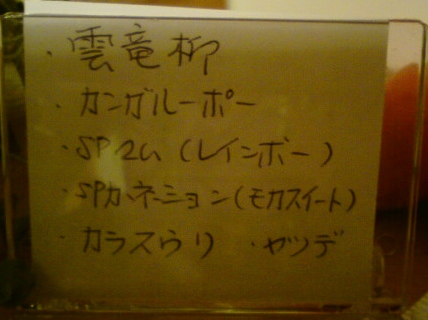 ・雲竜柳
・カンガルーポー
・SPマム（レインボー）
・SPカーネーション（モカスイート）
・カラスウリ ・ヤツデ